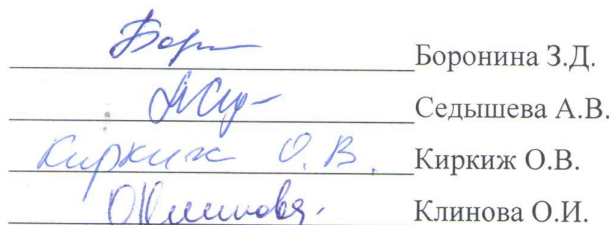 Бор Боронина З.Д.
Седышева А.В.
Киркиж О.В. Киркиж О.В.
ОКлинова Клинова О.И.